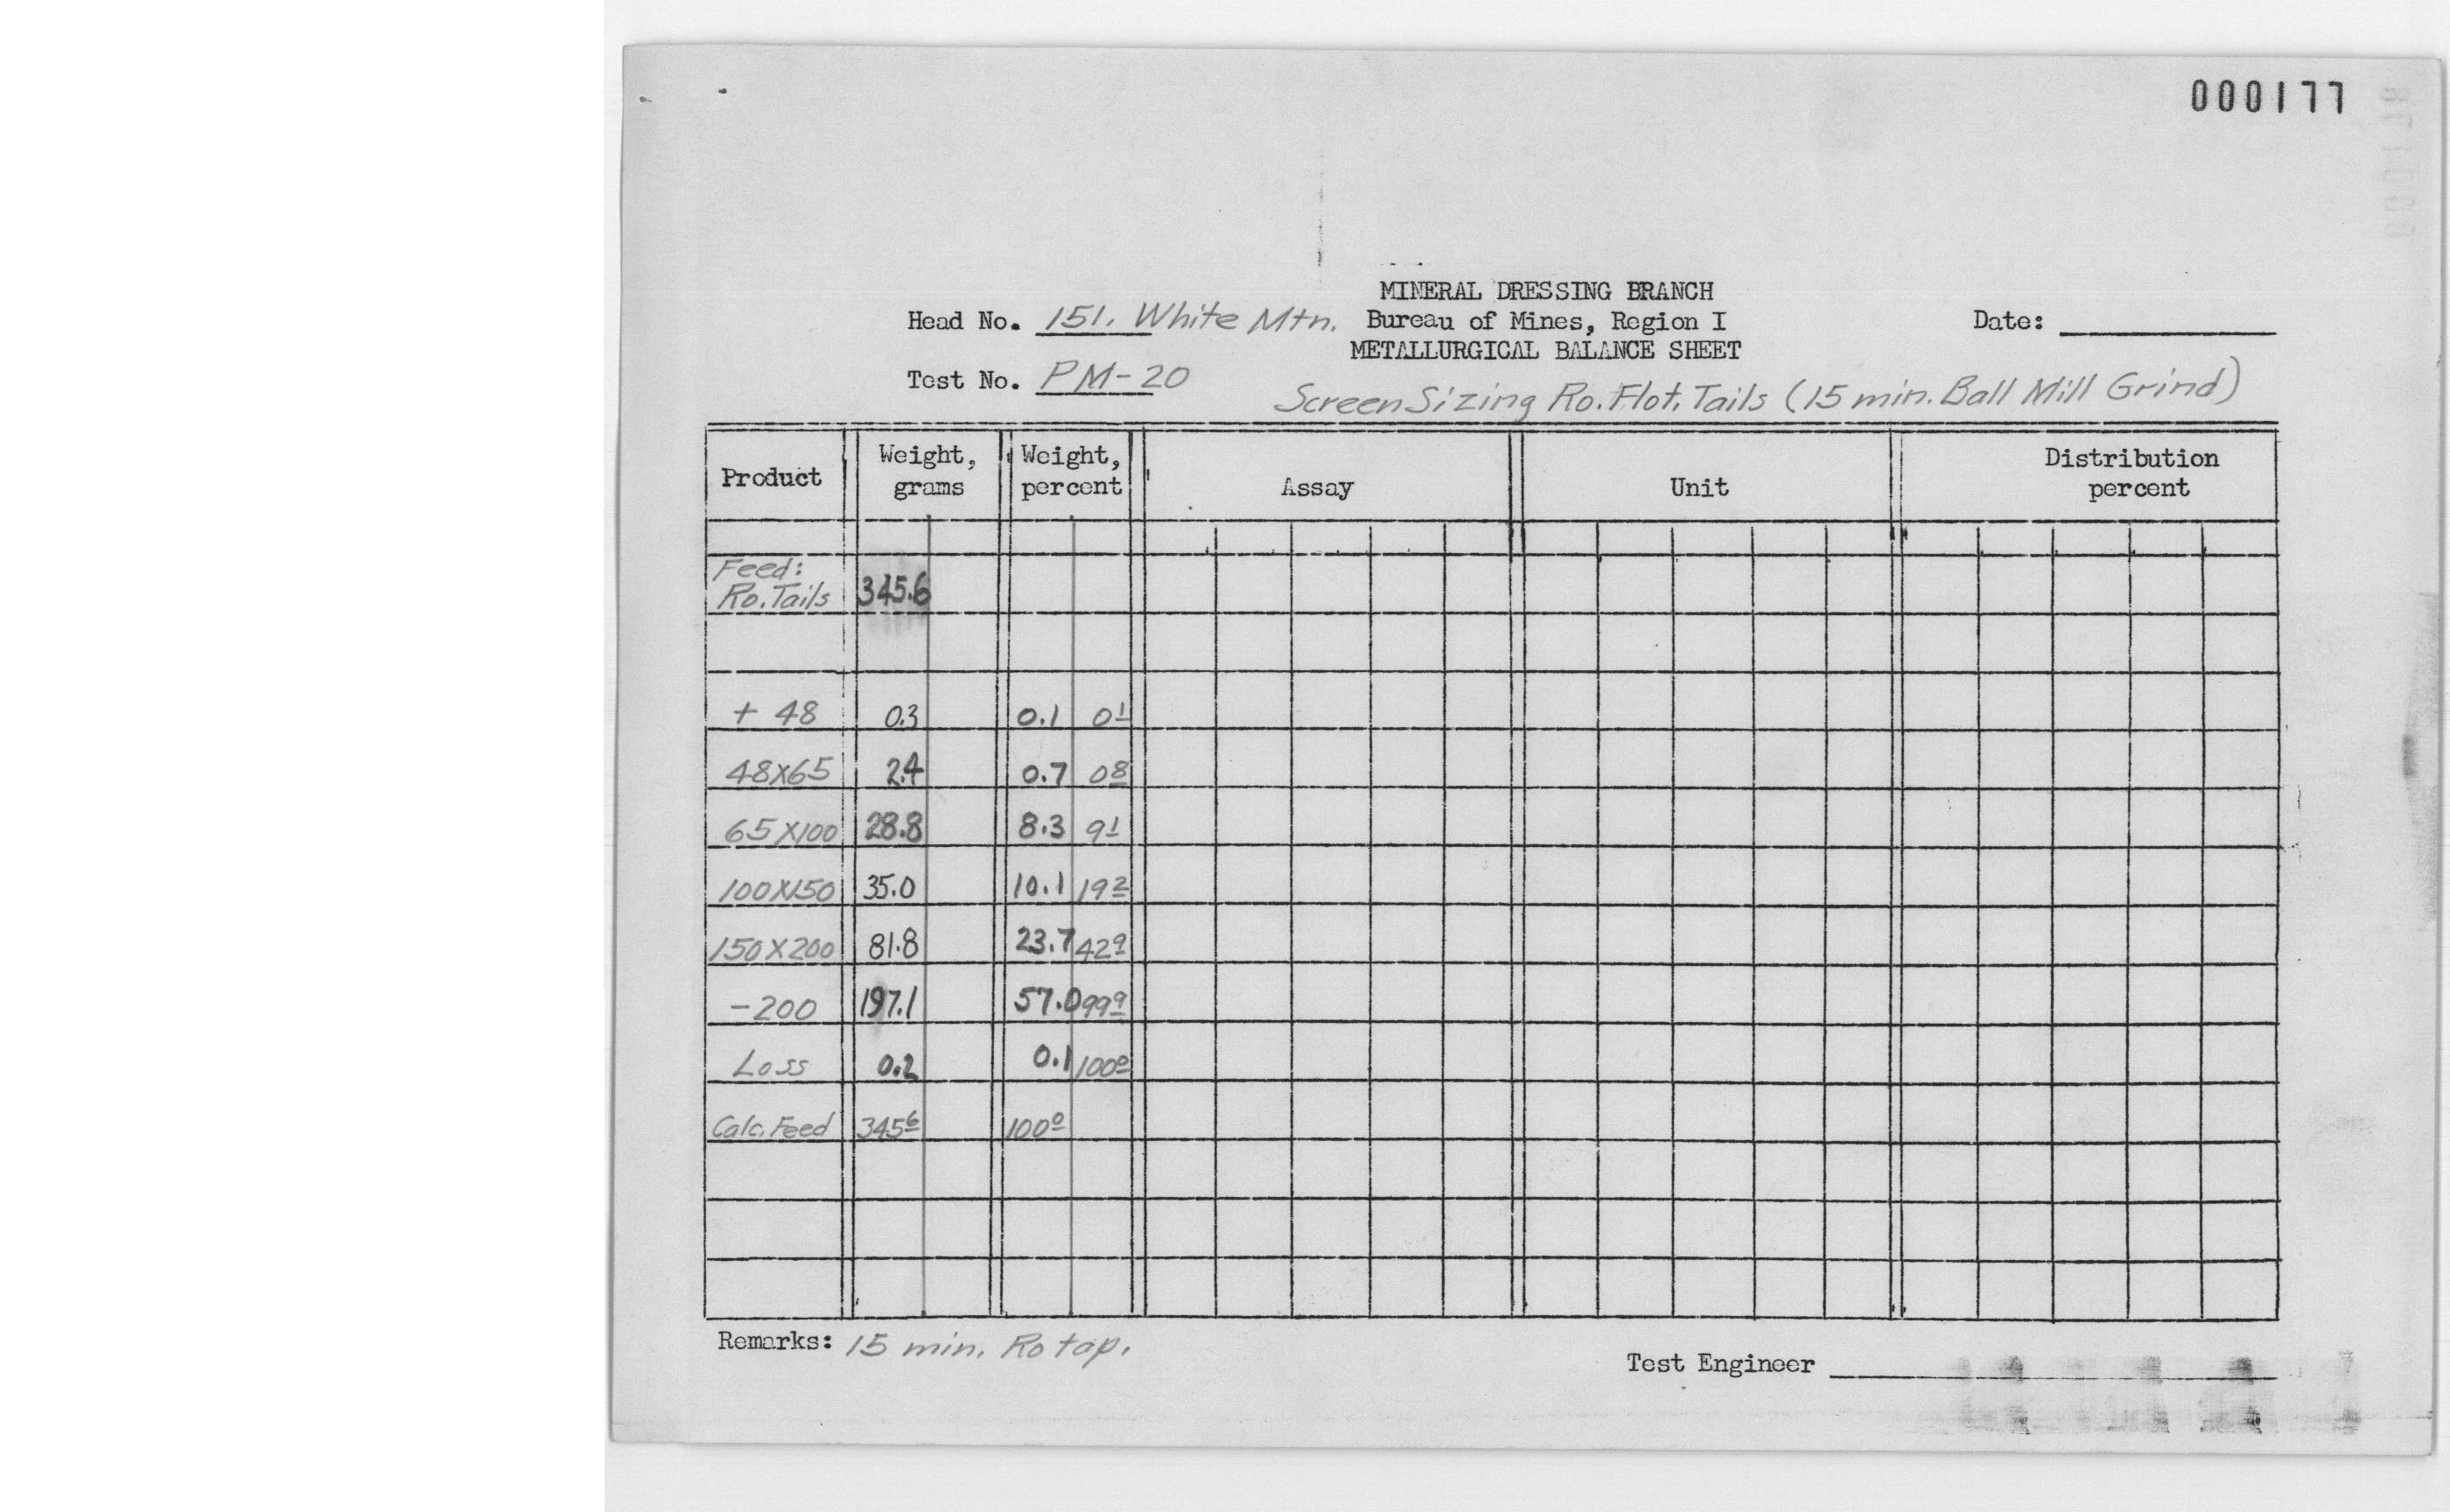 000177
MINERAL DRESSING BRANCH
Head No. 151. White Mtn. Bureau of Mines, Region I Date:
METALLURGICAL BALANCE SHEET
Test No. PM-20
Screen Sizing Ro. Flot. Tails (15 min. Ball Mill Grind)
Product Weight, grams Weight, percent Assay Unit Distribution percent
Feed:
Ro. Tails 345.6
+ 48 0.3 0.1 01
48X65 2.4 0.7 08
65X100 28.8 8.3 91
100X150 35.0 10.1 192
150X200 81.8 23.7 429
-200 197.1 57.0 999
Loss 0.2 0.1 1000
Calc. Feed 3456 1000
Remarks: 15 min. Rotap.
Test Engineer